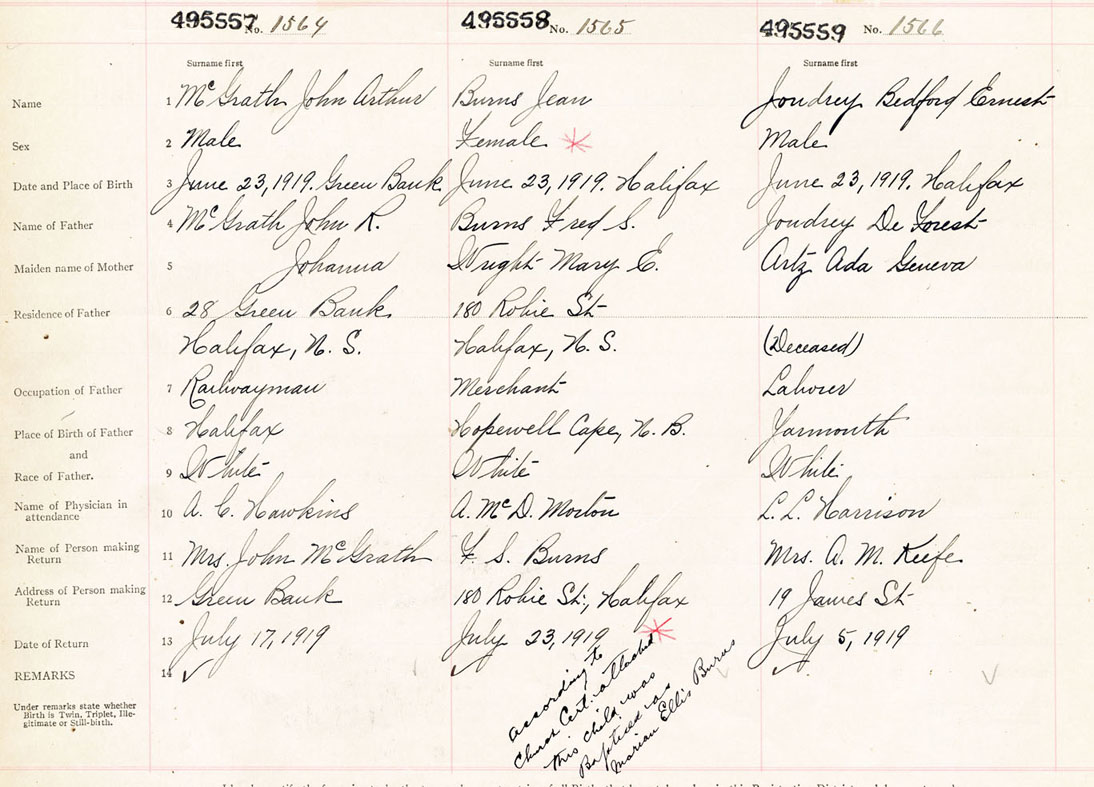 495557 No. 1564 495558 No. 1565 495559 No. 1566
Surname first Surname first Surname first
Name 1 McGrath John Arthur Burns Jean Joudrey Bedford Ernest
Sex 2 Male Female Male
Date and Place of Birth 3 June 23, 1919. Green Bank June 23, 1919. Halifax June 23, 1919. Halifax
Name of Father 4 McGrath John R. Burns Fred S. Joudrey De Forest
Maiden name of Mother 5 Johanna Wright Mary E. Artz Ada Geneva
Residence of Father 6 28 Green Bank 180 Robie St
Halifax, N. S. Halifax, N. S. (Deceased)
Occupation of Father 7 Railwayman Merchant Laborer
Place of Birth of Father 8 Halifax Hopewell Cape, N. B. Yarmouth
and
Race of Father. 9 White White White
Name of Physician in
attendance 10 A. C. Hawkins A. McD. Morton L. L. Harrison
Name of Person making
Return 11 Mrs. John McGrath F. S. Burns Mrs. A. M. Keefe
Address of Person making
Return 12 Green Bank 180 Robie St., Halifax 19 James St
Date of Return 13 July 17, 1919 July 23, 1919 July 5, 1919
REMARKS 14
Under remarks state whether
Birth is Twin, Triplet, Ille-
gitimate or Still-birth.
according to
Church Cert. attached
this child was
Baptised as
Marian Ellis Burns